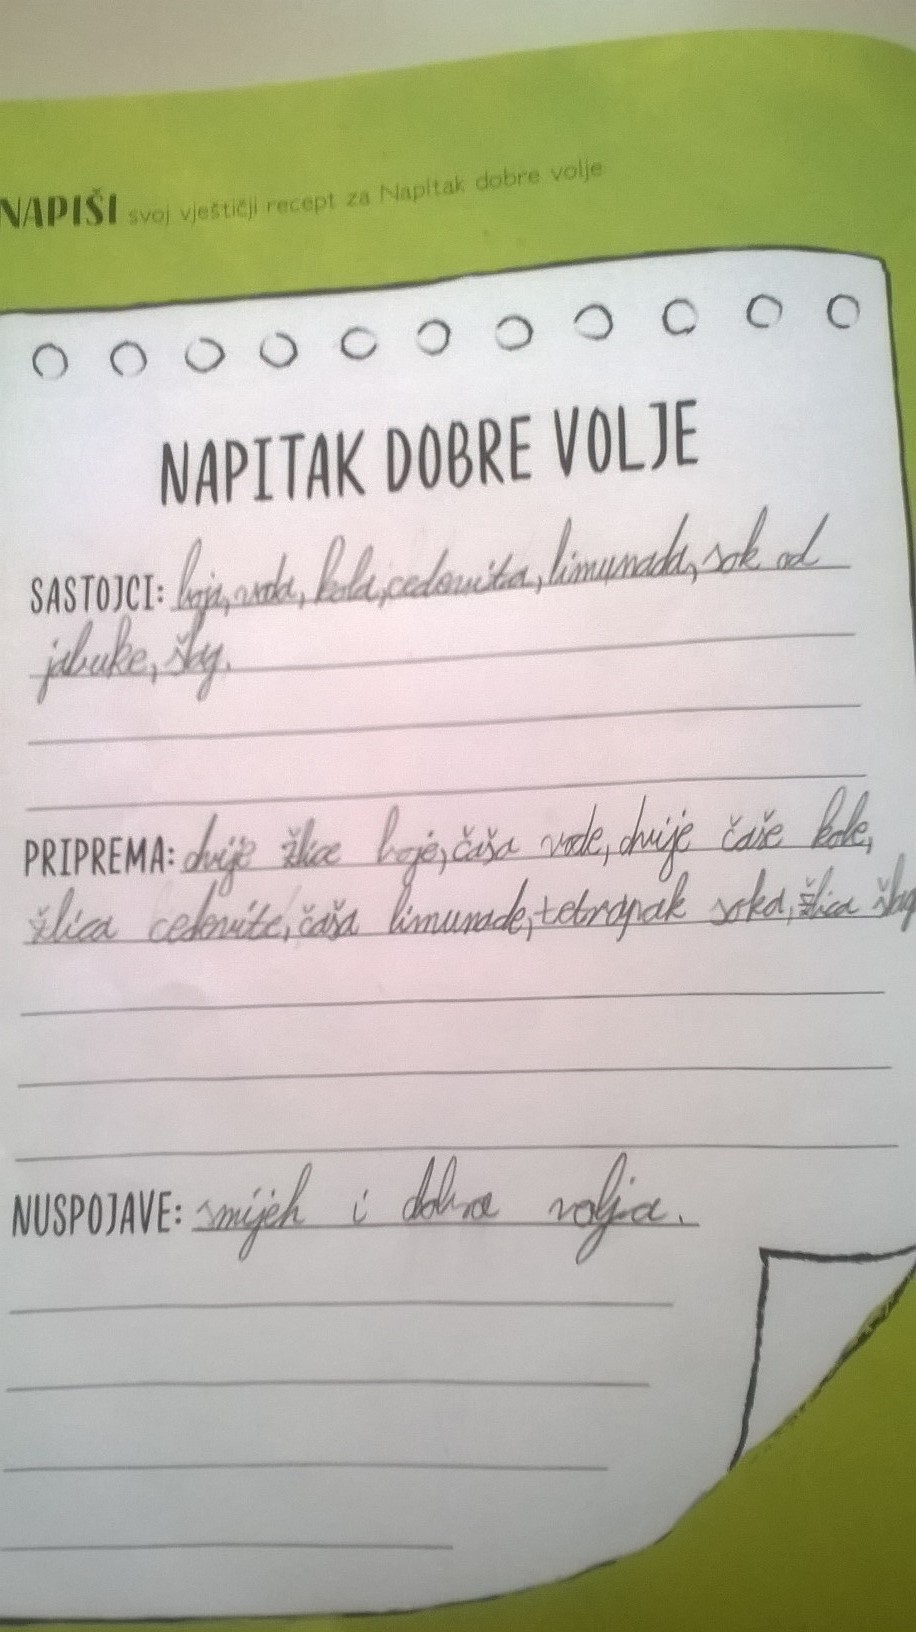 NAPIŠI svoj vještičji recept za Napitak dobre volje
NAPITAK DOBRE VOLJE
SASTOJCI: boja, voda, kola, cedevita, limunada, sok od
jabuke, šlag.
PRIPREMA: dvije žlice boje, čaša vode, dvije čaše kole,
žlica cedevite, čaša limunade, tetrapak soka, žlica
NUSPOJAVE: smijeh i dobra volja.